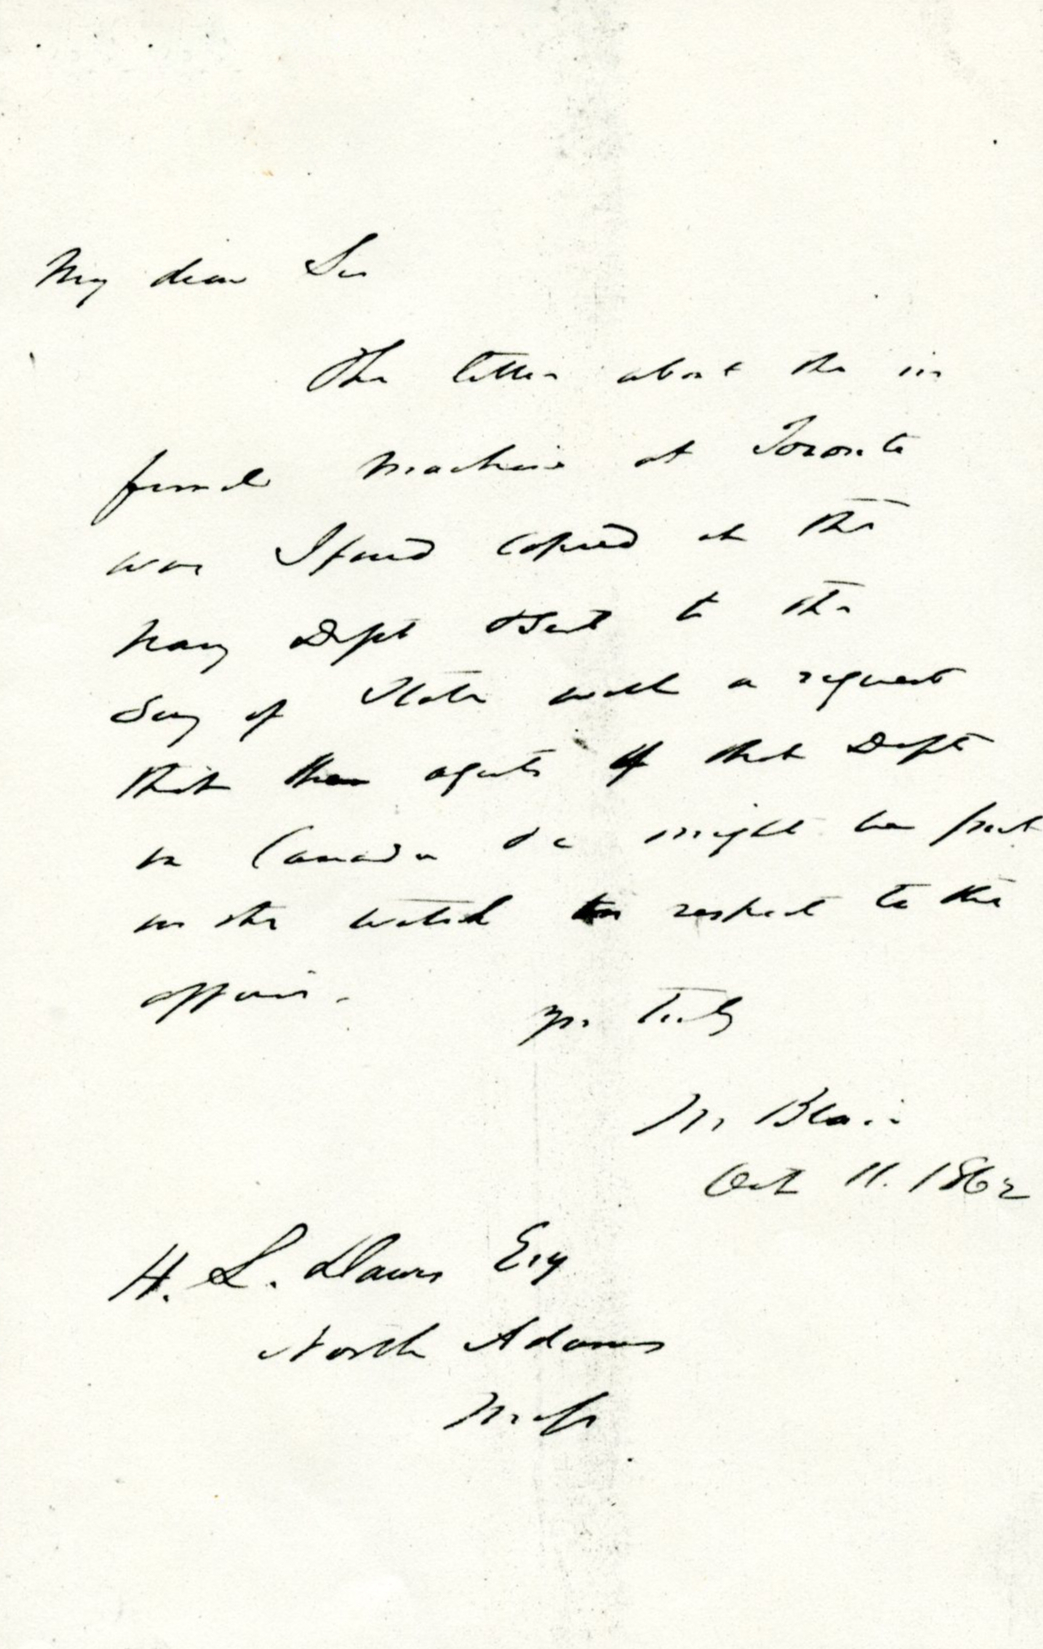 My dear Sir
The letter about the in
fernal machine at Toronto
was I found copied at the
Navy Dept & sent to the
Secy of State with a request
that the agents of that Dept
in Canada &c might be put
on the watch in respect to the
affair.
Yrs Truly
M Blair
Oct 11. 1862
H. L. Dawes Esq
North Adams
Mass